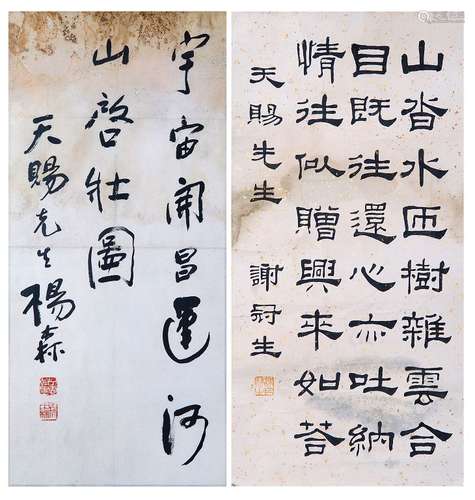 宇宙開昌運河
山啓壯圖
天賜先生 楊森
山沓水匝樹雜雲合
目既往還心亦吐納
情往似贈興來如荅
天賜先生 謝冠生